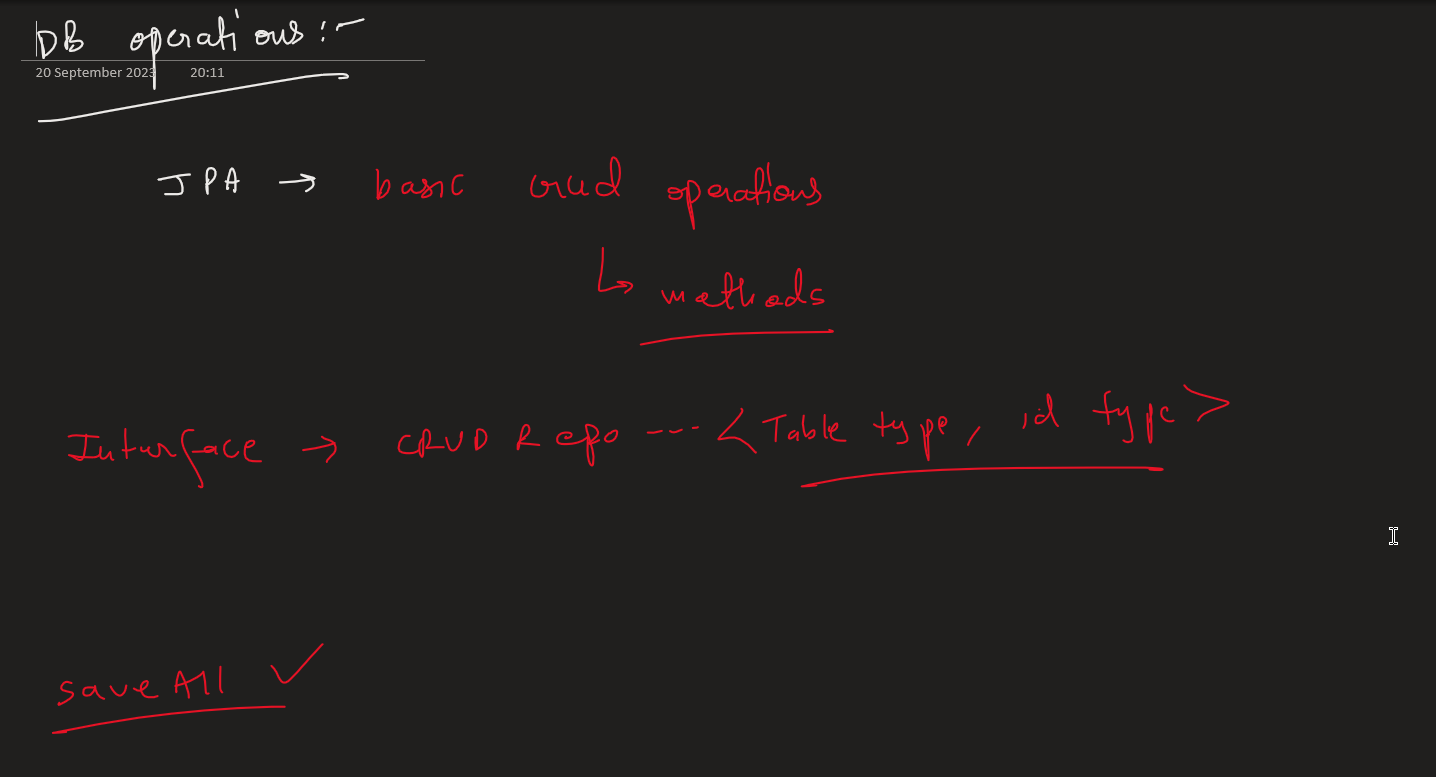 DB operations :-
20 September 2023 20:11
JPA → basic crud operations
↳ methods
Interface → CRUD Repo --- < Table type, id type >
saveAll ✓